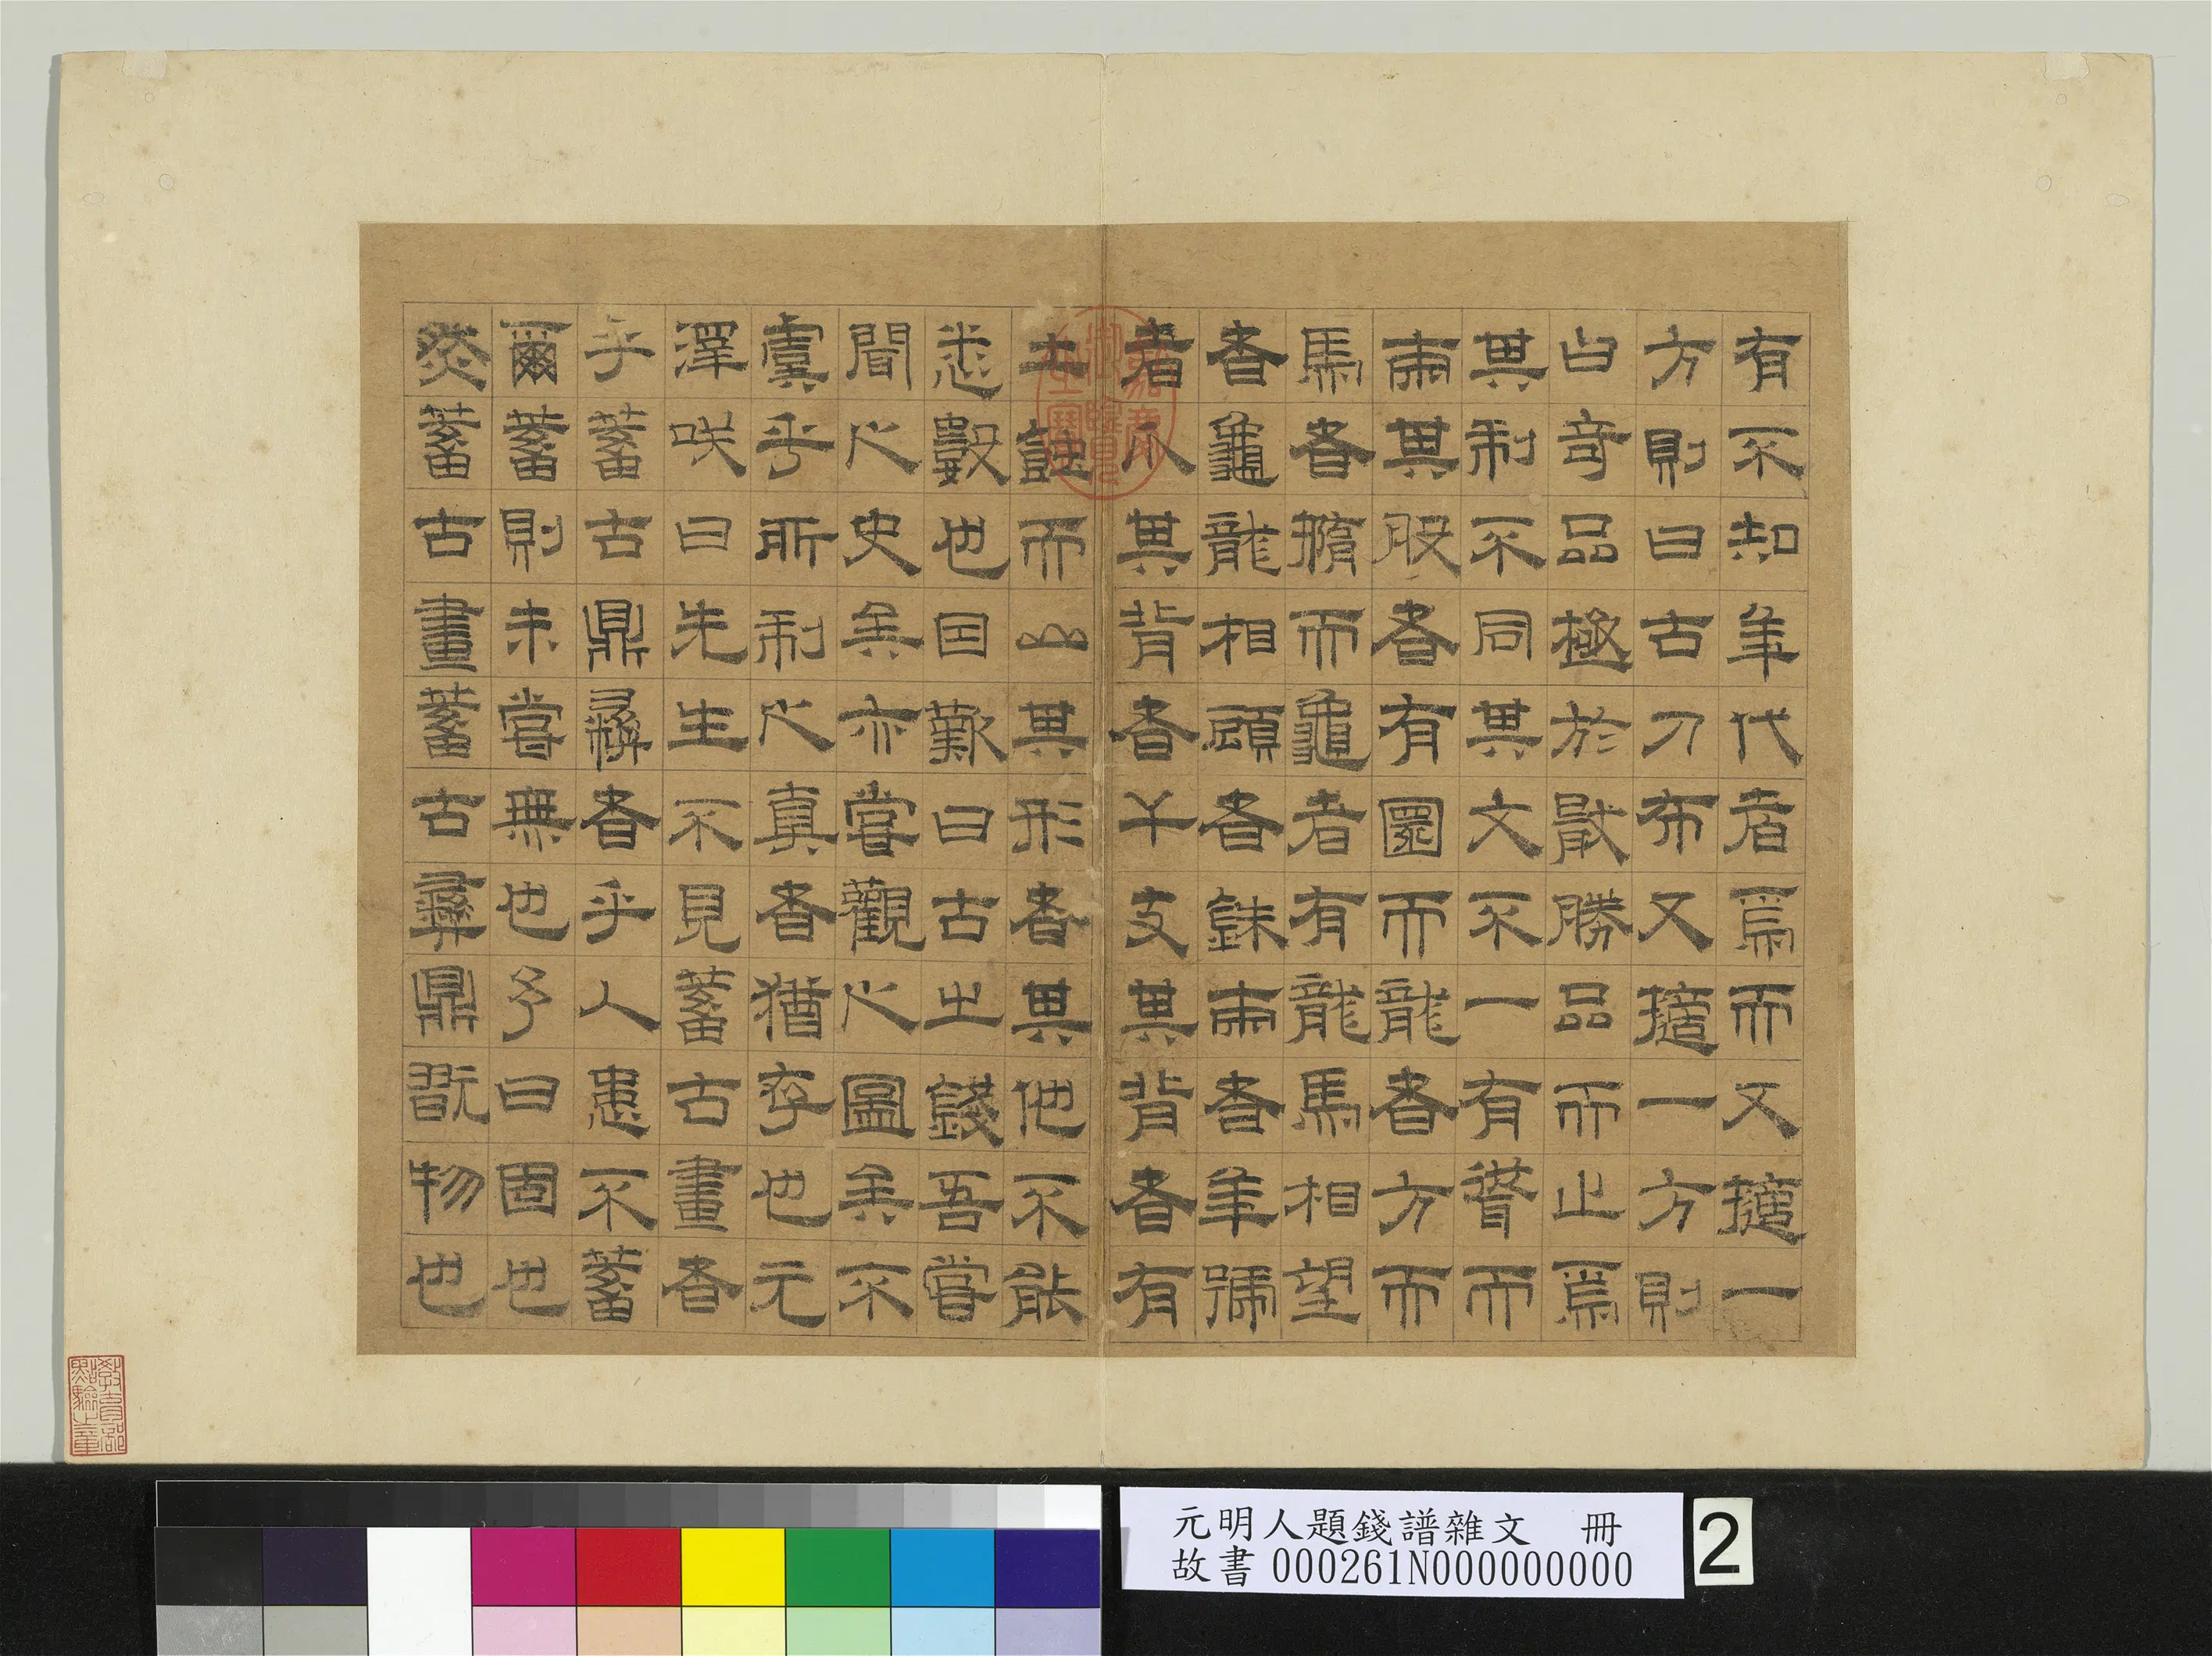 有不知年代者焉而又摭一
方則曰古刀布又摭一方則
曰奇品極於散勝品而止焉
其制不同其文不一有而
兩其股者有圜而龍者方而
馬者橢而龜者有龍馬相望
者龜龍相顧者銖兩者年號
者爪其背者干支其背者有
土蝕而山其形者其他不能
悉數也囙歎曰古之錢吾嘗
聞之史矣亦嘗觀之圖矣不
虞乎所制之真者猶存也元
澤咲曰先生不見蓄古畫者
乎蓄古鼎彝者乎人患不蓄
爾蓄則未嘗無也予曰固也
然蓄古畫蓄古彝鼎翫物也
嘉慶御覽之寶
教育部點驗之章
元明人題錢譜雜文 冊
故書 000261N000000000
2